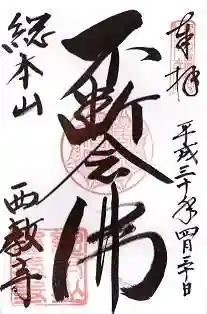 奉拝
平成三十年四月三十日
不断念佛
総本山
西教寺